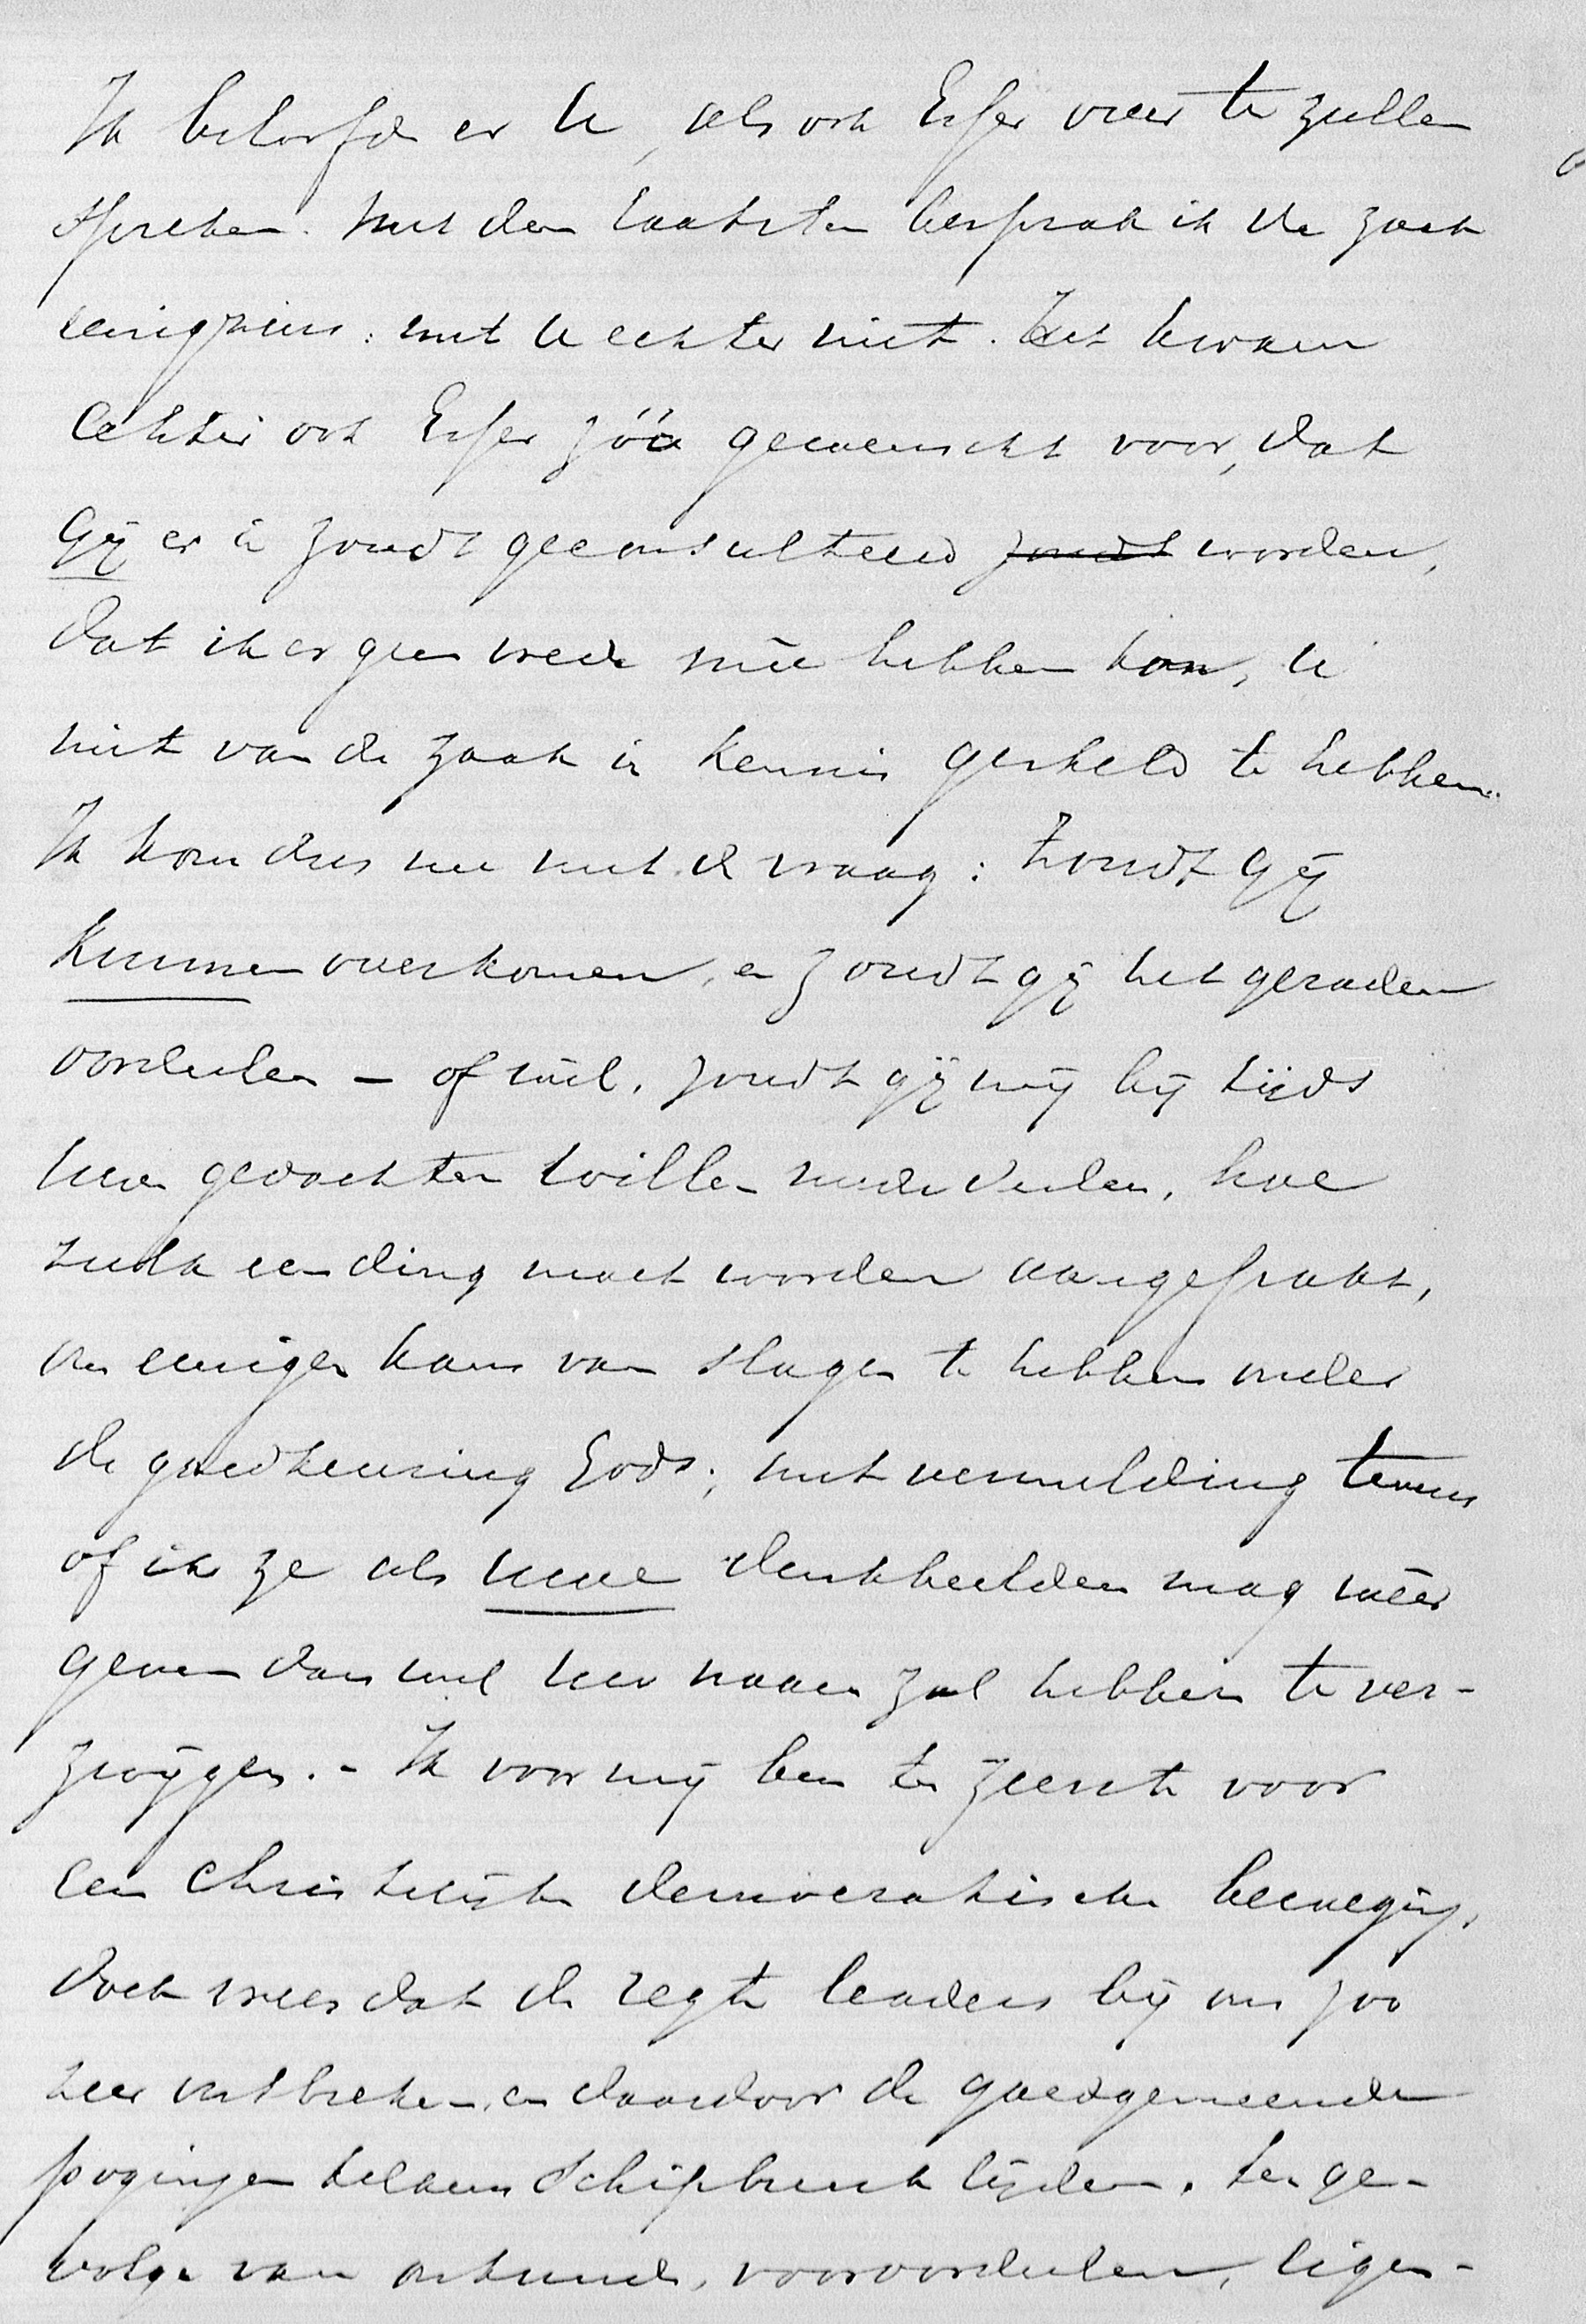 Ik beloofde er U, als ook Esser over te zullen
spreken. Met den laatsten besprak ik de zaak
eenigzins: met U echter niet. Het kwam
echter ook Esser zóó gewenscht voor, dat
Gij er in zoudt geconsulteerd zoudt worden,
dat ik er geen vrede mêe hebben kon, U
niet van de zaak in kennis gesteld te hebben.
Ik kom dus nu met de vraag: Zoudt Gij
kunnen overkomen, en zoudt gij het geraden
oordeelen – of wel, zoudt gij mij bij tijds
uwe gedachten willen mededeelen, hoe
zulk een ding moet worden aangepakt,
om eenigen kans van slagen te hebben onder
de goedkeuring Gods; met vermelding tevens
of ik ze als uwe denkbeelden mag wêer
geven dan wel uw naam zal hebben te ver-
zwijgen. – Ik voor mij ben ten zeerste voor
een christelijk democratische beweging,
doch vrees dat de regte leaders bij ons zoo
zeer ontbreken, en daardoor de goedgemeende
pogingen telkens schipbreuk lijden. Ten ge-
volge van onkunde, vooroordeelen, eigen-